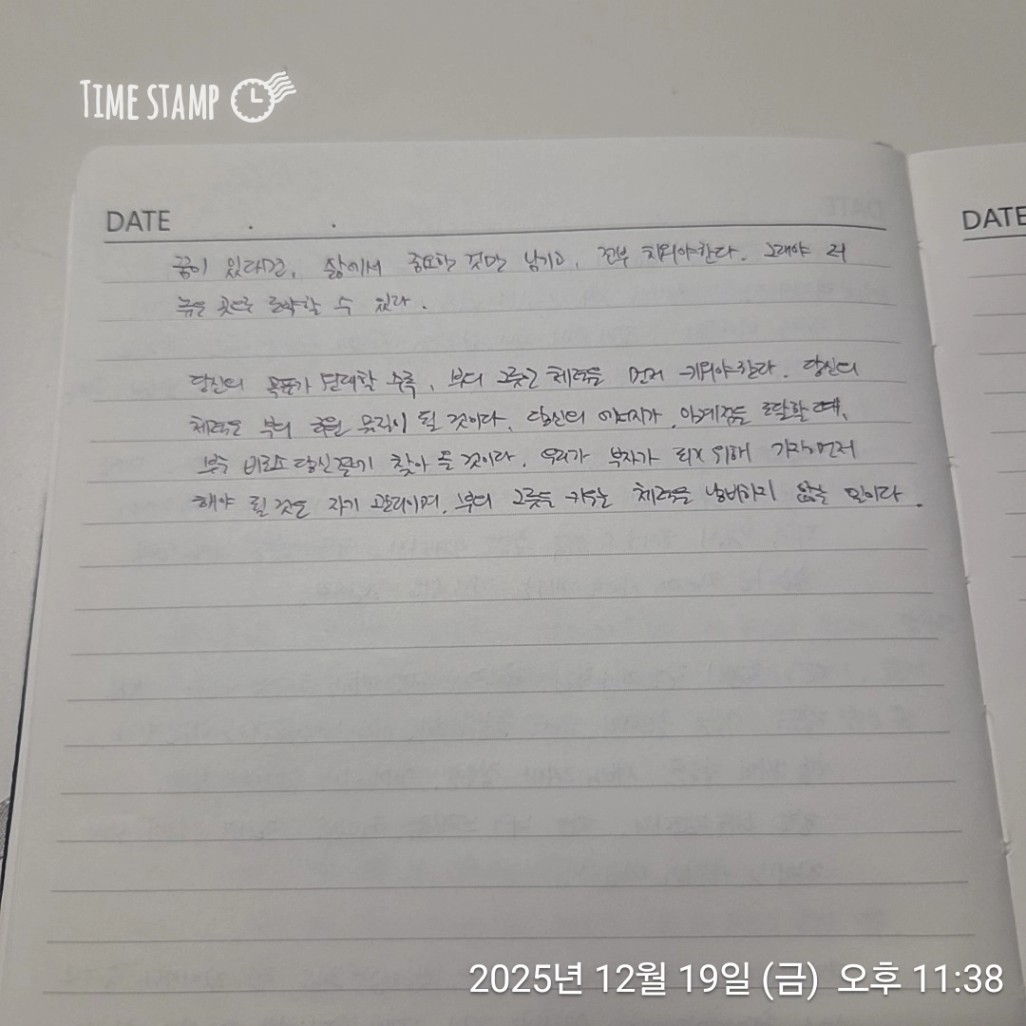 TIME STAMP
DATE . .
DATE
꿈이 있다면, 삶에서 중요한 것만 남기고, 전부 치워야한다. 그래야 더
높은 곳으로 도약할 수 있다.
당신의 목표가 원대할 수록, 부의 그릇인 체력을 먼저 키워야한다. 당신의
체력은 부의 그릇이 될 것이다. 당신의 에너지가 임계점을 도달할 때,
부는 비로소 당신 곁에 찾아 올 것이다. 우리가 부자가 되기 위해 가장먼저
해야 될 것은 자기 관리이며, 부의 그릇을 키우는 체력을 낭비하지 않는 일이다.
2025년 12월 19일 (금) 오후 11:38